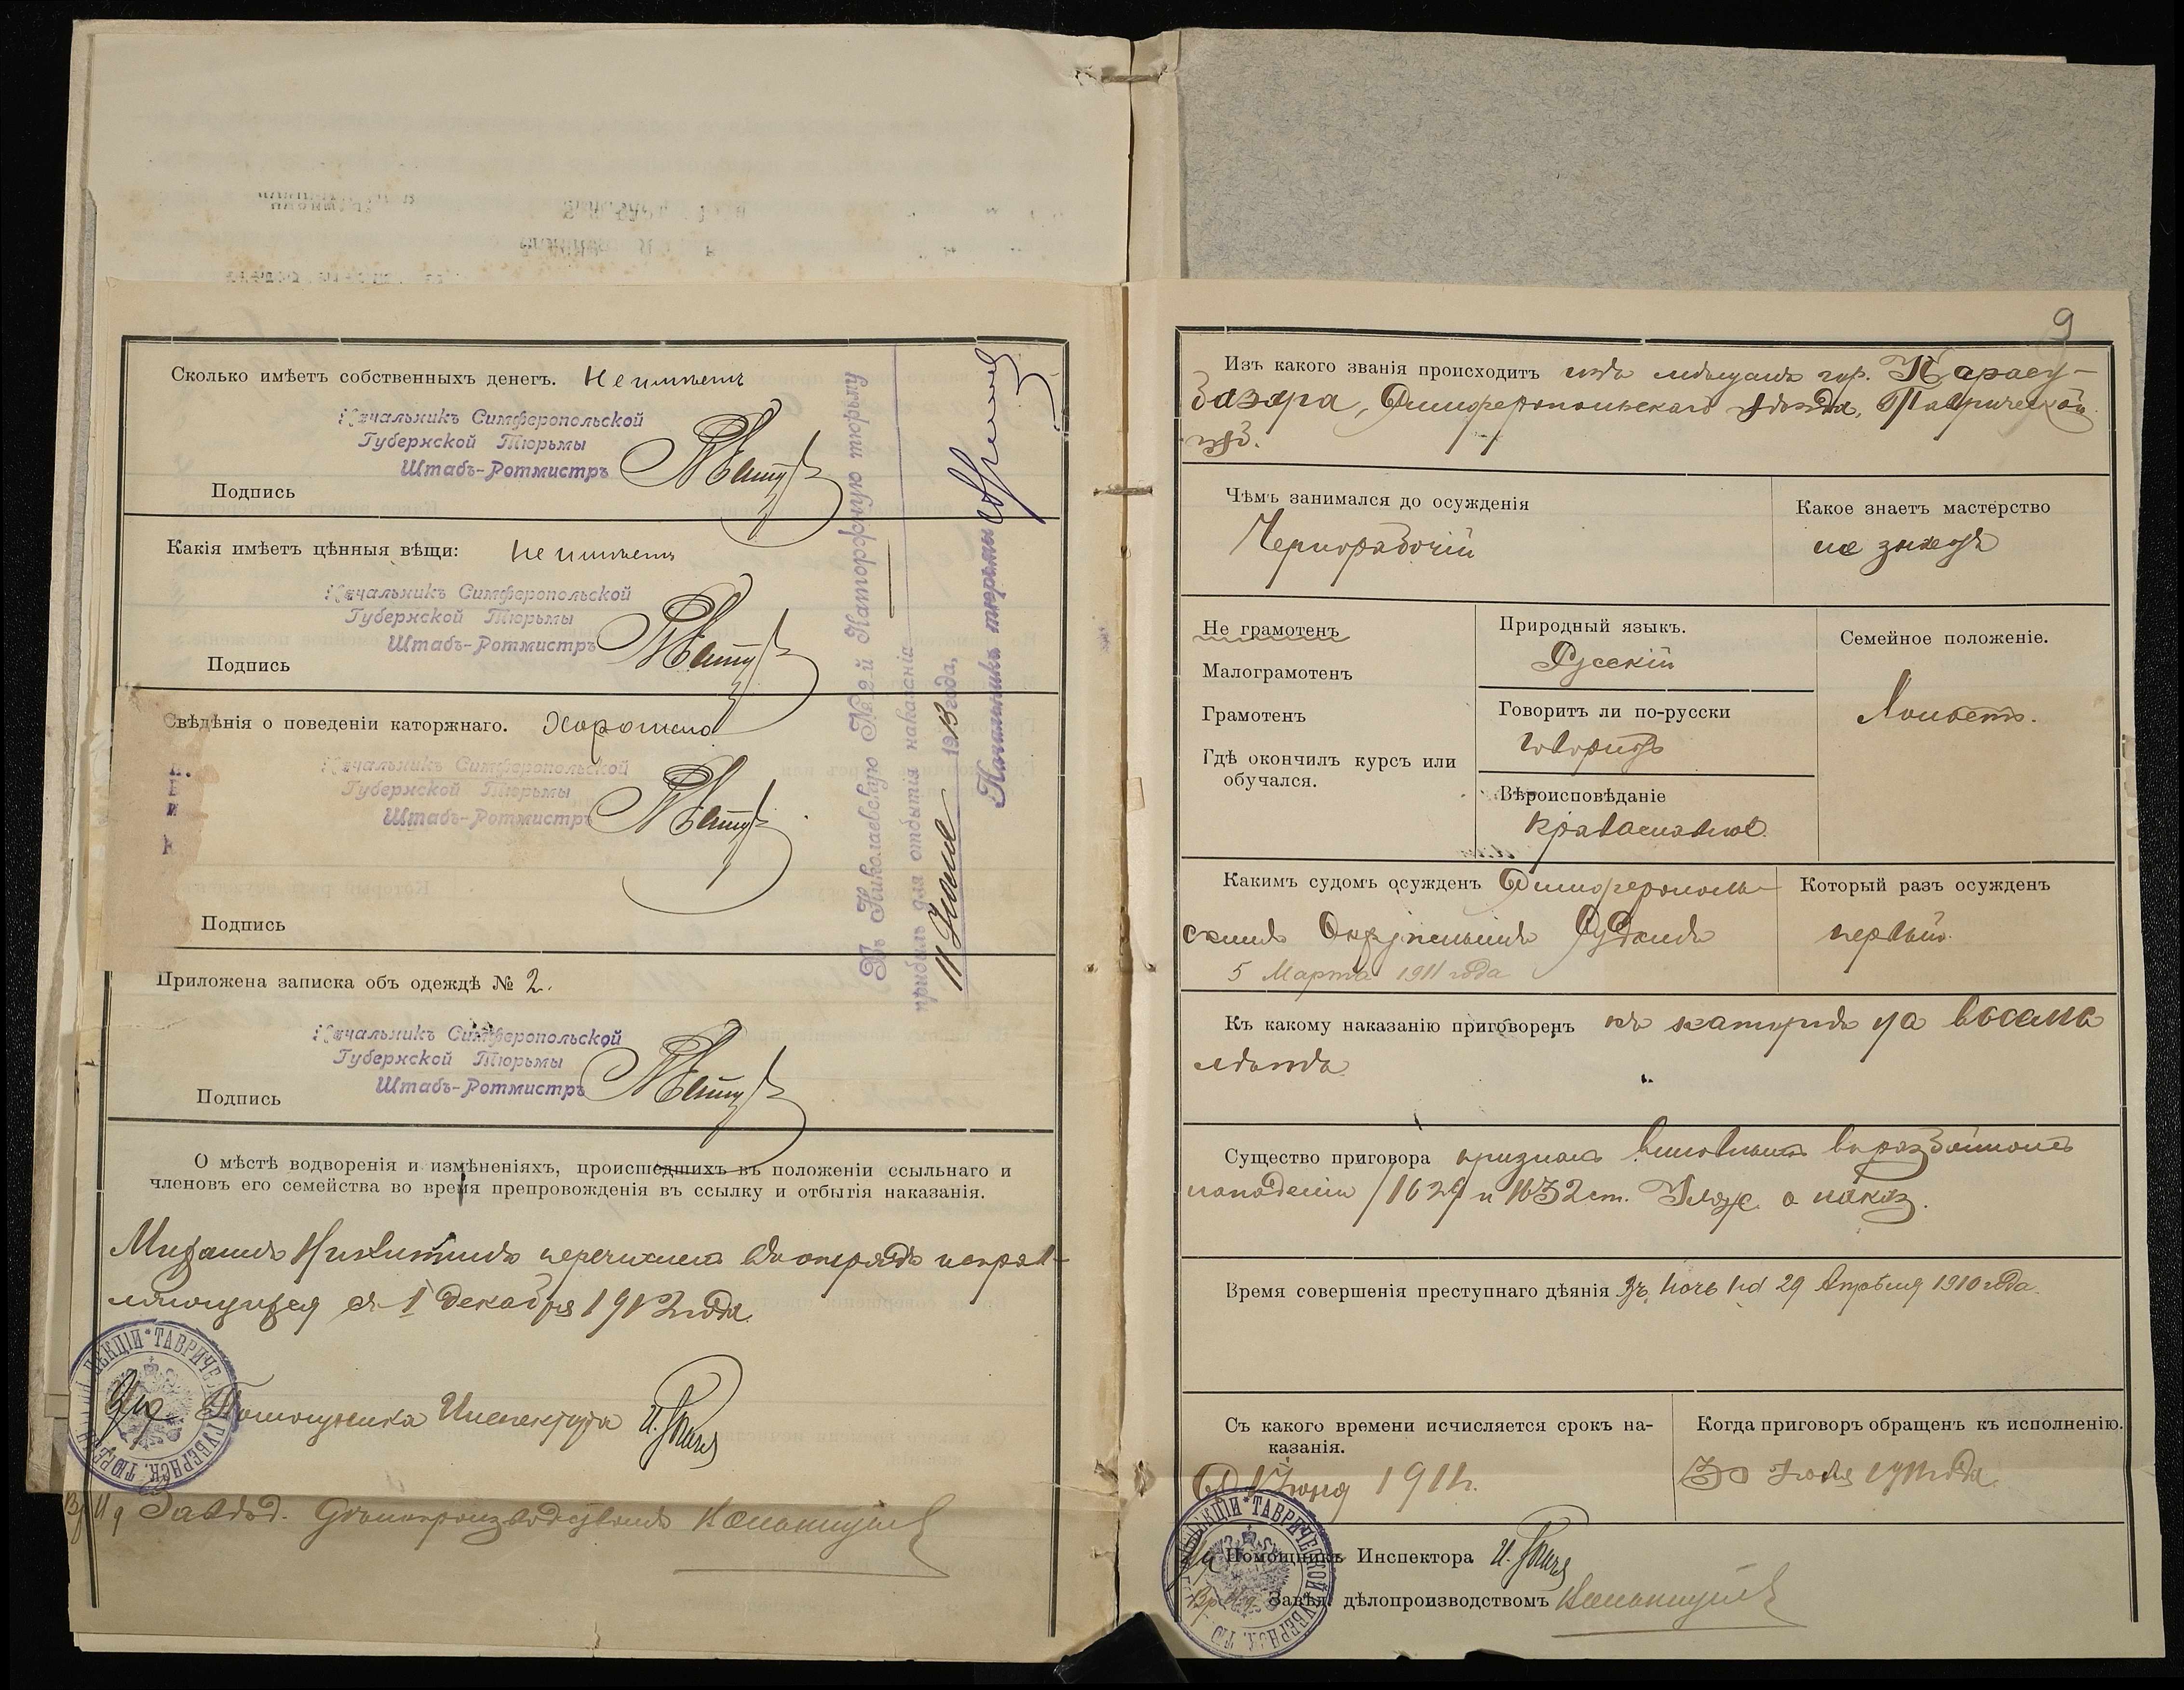 Сколько имѣетъ собственныхъ денегъ. Не имѣетъ
Начальникъ Симферопольской
Губернской Тюрьмы
Штабъ-Ротмистръ
Подпись
Какія имѣетъ цѣнныя вѣщи: не имѣетъ
Начальникъ Симферопольской
Губернской Тюрьмы
Штабъ-Ротмистръ
Подпись
Свѣдѣнія о поведеніи каторжнаго. Хорошаго
Начальникъ Симферопольской
Губернской Тюрьмы
Штабъ-Ротмистръ
Подпись
Приложена записка объ одеждѣ № 2.
Начальникъ Симферопольской
Губернской Тюрьмы
Штабъ-Ротмистръ
Подпись
Въ Николаевскую № 2-й Каторжную тюрьму
прибылъ для отбытія наказанія
11 1913 года,
Начальникъ тюрьмы
О мѣстѣ водворенія и измѣненіяхъ, происшедшихъ въ положеніи ссыльнаго и
членовъ его семейства во время препровожденія въ ссылку и отбытія наказанія.
Никитинъ перечисленъ въ отрядъ исправ-
ляющихся съ 1 декабря 1912 года.
Помощника Инспектора
Завѣд. Дѣлопроизводствомъ
9
Изъ какого званія происходитъ изъ мѣщанъ гор. Карасу-
базара, Симферопольскаго уѣзда, Таврической
губ.
Чѣмъ занимался до осужденія
Чернорабочій
Какое знаетъ мастерство
не знаетъ
Не грамотенъ
Малограмотенъ
Грамотенъ
Гдѣ окончилъ курсъ или
обучался.
Природный языкъ.
Русскій
Говоритъ ли по-русски
говоритъ
Вѣроисповѣданіе
православное
Семейное положеніе.
Холостъ.
Какимъ судомъ осужденъ Симферополь-
скимъ Окружнымъ Судомъ
5 Марта 1911 года
Который разъ осужденъ
первый
Къ какому наказанію приговоренъ къ каторгѣ на восемь
лѣтъ
Существо приговора признанъ виновнымъ въ разбойномъ
нападеніи /1629 и 1632 ст. Улож. о наказ.
Время совершенія преступнаго дѣянія Въ ночь на 29 1910 года.
Съ какого времени исчисляется срокъ на-
казанія.
1911 г.
Когда приговоръ обращенъ къ исполненію.
30 1911 года
Помощникъ Инспектора
Завѣд. дѣлопроизводствомъ